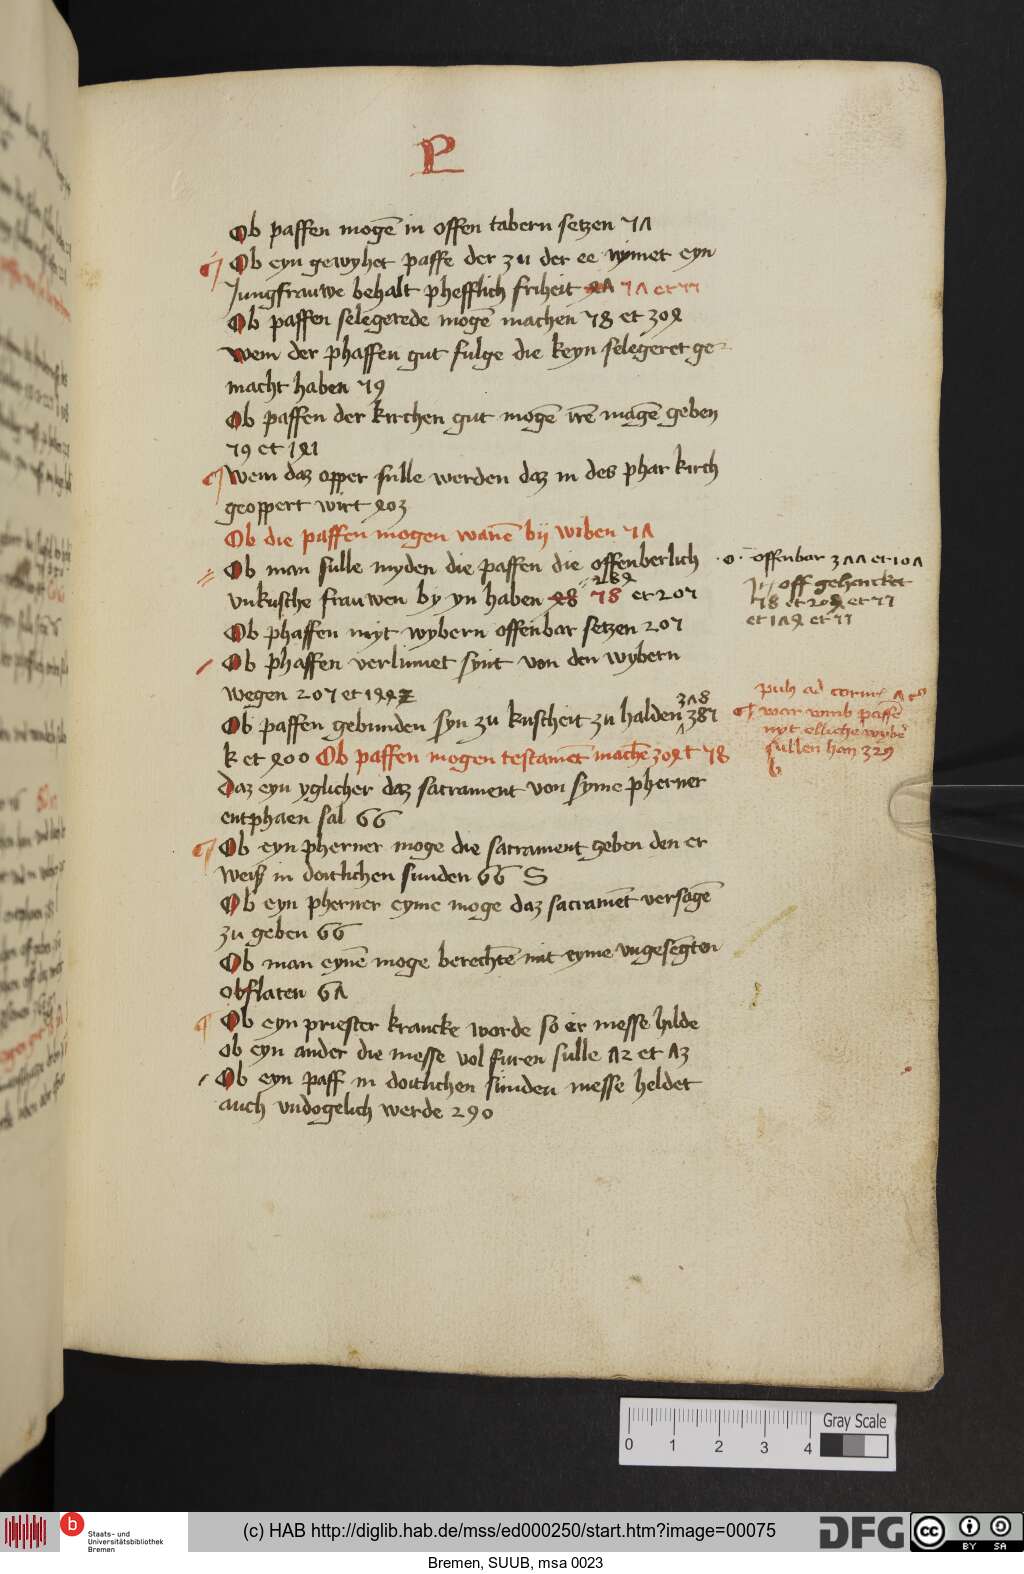 P
Ob paffen mogē in offen tabern setzen 7Λ
Ob eyn gewyhet paffe der zu der ee nymet eyn
Jungfrauwe behalt phefflich friheit 7Λ et 77
Ob paffen selegerede mogē machen 78 et 30ꝝ
Wem der phaffen gut fulge die keyn selegeret ge
macht haben 79
Ob paffen der kirchen gut mogē irē magē geben
79 et 1ꝝ1
Wem daz opper sulle werden daz in des phar kirch
geoppert wirt ꝝ03
Ob die paffen mogen wanē bij wiben 7Λ
Ob man sulle myden die paffen die offenberlich
vnkusche frauwen by yn haben 78 et 207
Ob phaffen myt wybern offinbar setzen 207
Ob phaffen verlumet synt von den wybern
wegen 207 et
Ob paffen gebunden syn zu kuscheit zu halden 387
3Λ8
k et ꝝ00 Ob paffen mogen testamēt machē 30ꝝ et 78
Daz eyn yglicher daz sacrament von syme pherner
entphaen sal 66
Ob eyn pherner moge die sacrament geben den er
weiß in doitlichen sunden 66 S
Ob eyn pherner eyme moge daz sacramēt versagē
zu geben 66
Ob man eynē moge berechtē mit eyme vngesegten
obflaten 6Λ
Ob eyn priester krancke worde so er messe hilde
ob eyn ander die messe vol furen sulle Λ2 et Λ3
Ob eyn paff in doitlichen sunden messe heldet
auch vndogelich werde 290
·o· offenbar 3ΛΛ et 10Λ
off gehencket
78 et 20ꝝ et 77
et 1Λꝝ et 77
war vmb paffē
nyt elliche wybē
sullen han 329
b
0 1 2 3 4
Gray Scale
b
Staats- und
Universitätsbibliothek
Bremen
(c) HAB http://diglib.hab.de/mss/ed000250/start.htm?image=00075
DFG
cc
BY SA
Bremen, SUUB, msa 0023